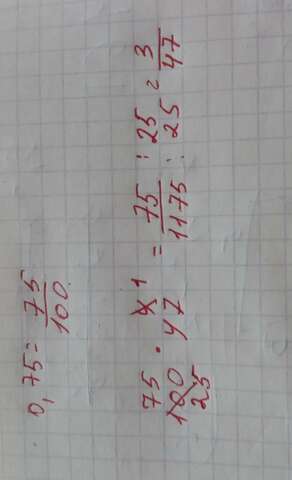 0,75 = 75/100
75/100 25 · 4 1/47 = 75/1175 : 25/25 = 3/47